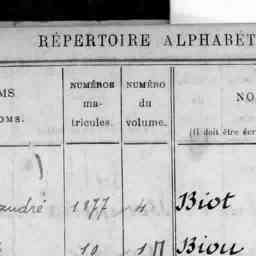 RÉPERTOIRE ALPHABÉT
MS
OMS.
NUMÉROS
ma-
tricules.
NUMÉRO
du
volume.
NO
(Il doit être écr
andré 1877 4 Biot
10 Biou